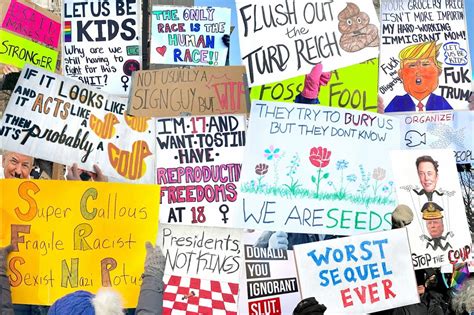 STRONGER
LET US BE
KIDS!
Why are we
Still having
to fight for
this
THE ONLY
RACE
IS THE
HUMAN
RACE!!
FLUSH OUT
THE
TURD REICH
YOUR GROCERY PRICES
ISN'T MORE IMPORTANT
MY HARD-WORKING
IMMIGRANT MOM!
FUCK
TRUMP
IF IT LOOKS LIKE
AND IT ACTS LIKE
THEN IT'S
probably a
COUP
COUP
COUP
NOT USUALLY A
SIGN GUY BUT WTF
FOSSIL FOOL
I'M 17 AND I
WANT TO STILL
HAVE
REPRODUCTIVE
FREEDOMS
AT 18
THEY TRY TO BURY US
BUT THEY DON'T KNOW
WE ARE SEEDS
ORGANIZE
STOP THE COUP
Super Callous
Fragile Racist
Sexist Nazi POTUS
Presidents,
NOT KINGS
DONALD
YOU
IGNORANT
SLUT.
WORST
SEQUEL
EVER